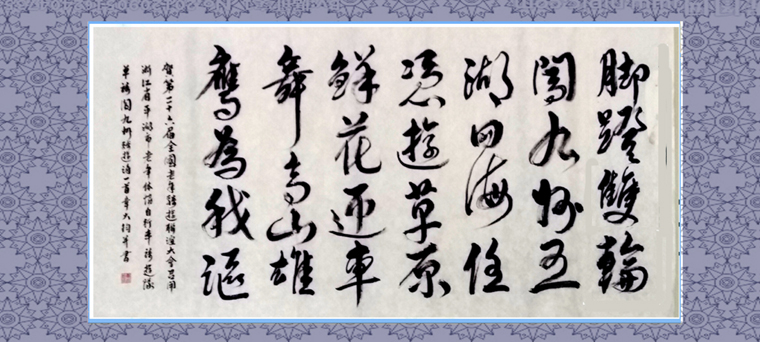 脚蹬雙輪
闖九州五
湖四海任
憑遊草原
鮮花迎車
舞高山雄
鹰為我謳
賀第二十六届全國老年騎遊聯誼大會召開
浙江省平湖市老年体協自行車騎遊隊
單騎闖九州騎遊詩一首章大相并書